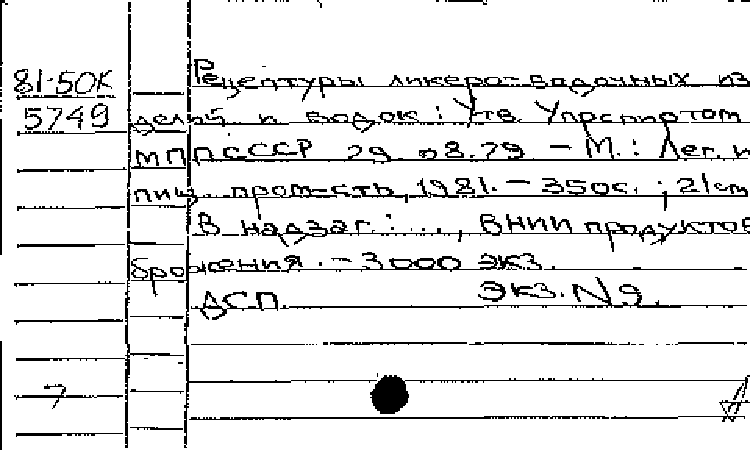 81-50К
5749
Рецептуры ликеро-водочных из
делий и водок: Утв Упрспиртом
МППСССР 29 08.79 – М.: Лег. и
пищ. пром-сть, 1981. – 350с. ; 21см
В надзаг.: ..., ВНИИ продуктов
брожения. – 3000 экз.
ДСП. Экз. №9.
7